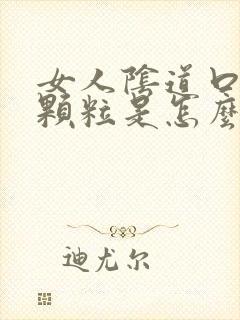 女人陰道口
顆粒是怎麼
迪尤尔